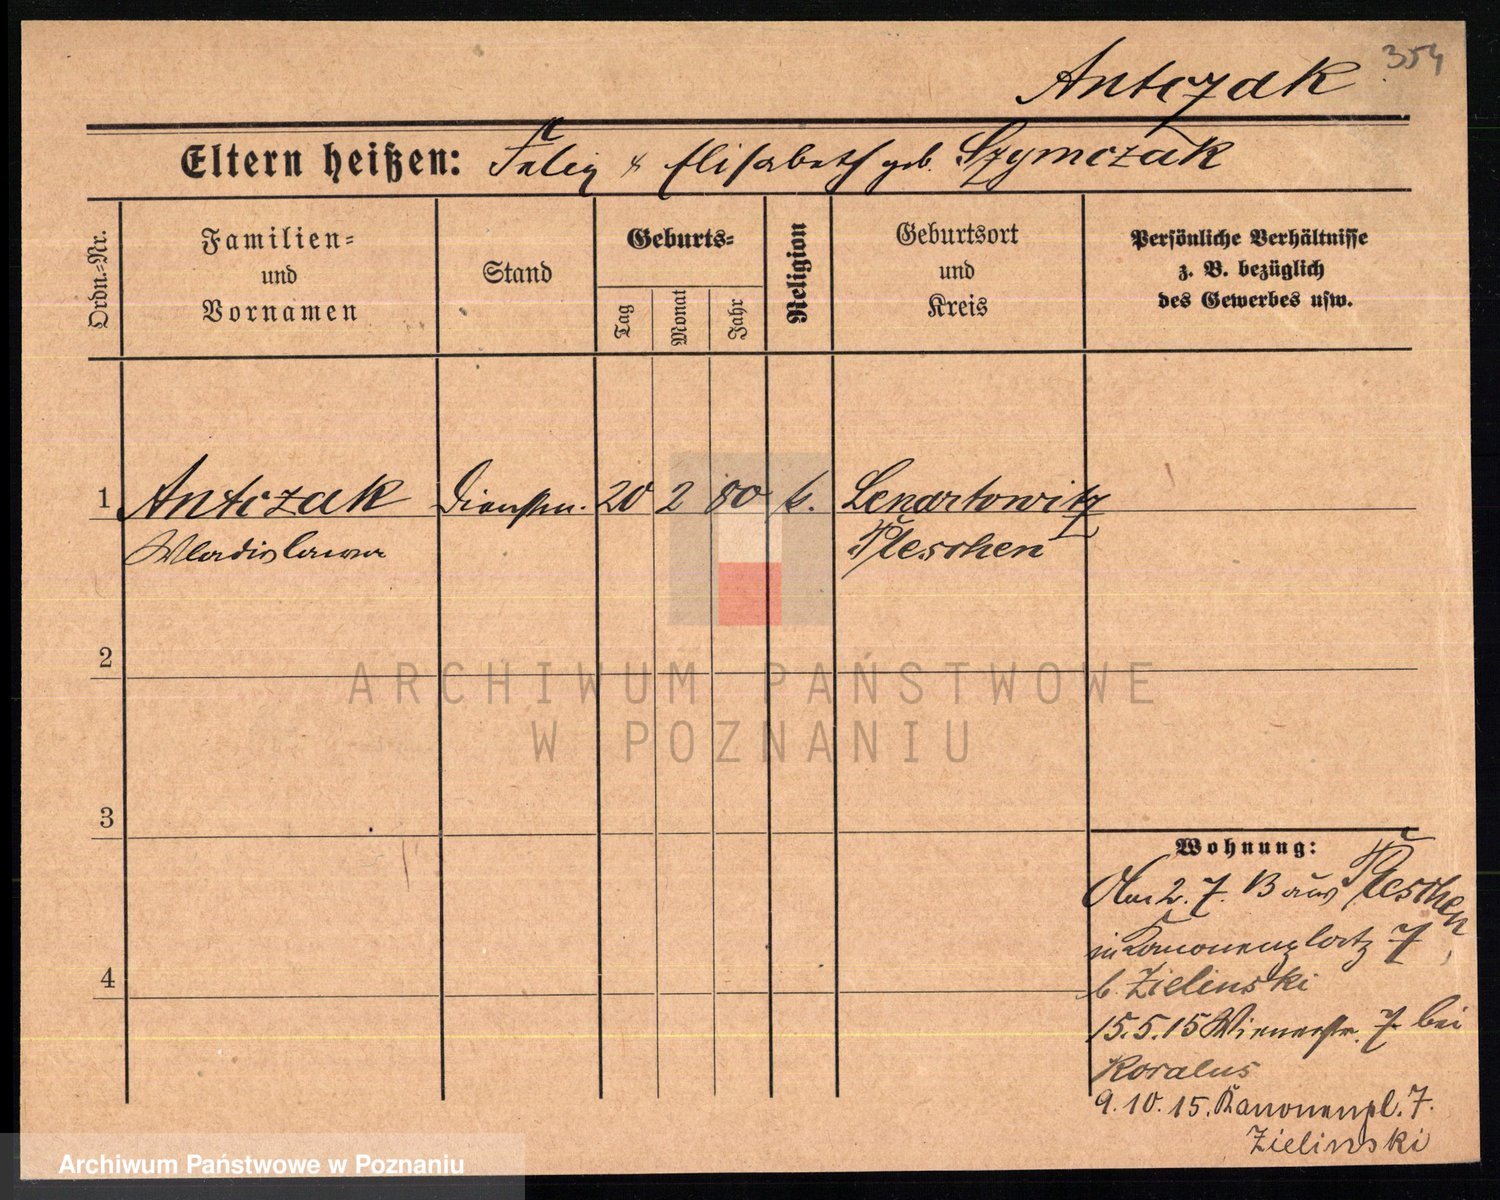 354
Antczak
Eltern heißen: Felix & Elisabeth geb. Szymczak
Ordn.-Nr.
Familien-
und
Vornamen
Stand
Geburts-
Tag
Monat
Jahr
Religion
Geburtsort
und
Kreis
Persönliche Verhältnisse
z. B. bezüglich
des Gewerbes usw.
1 Antczak Dienstm. 20 2 80 k. Lenartowitz
Wladislawa Pleschen
2
ARCHIWUM PAŃSTWOWE
W POZNANIU
3
Wohnung:
2. 7. 13 aus Pleschen
in Kanonenplatz 7
b. Zielinski
4
15.5.15 Wienerstr. 7 bei
Koralus
9.10.15. Kanonenpl. 7.
Zielinski
Archiwum Państwowe w Poznaniu